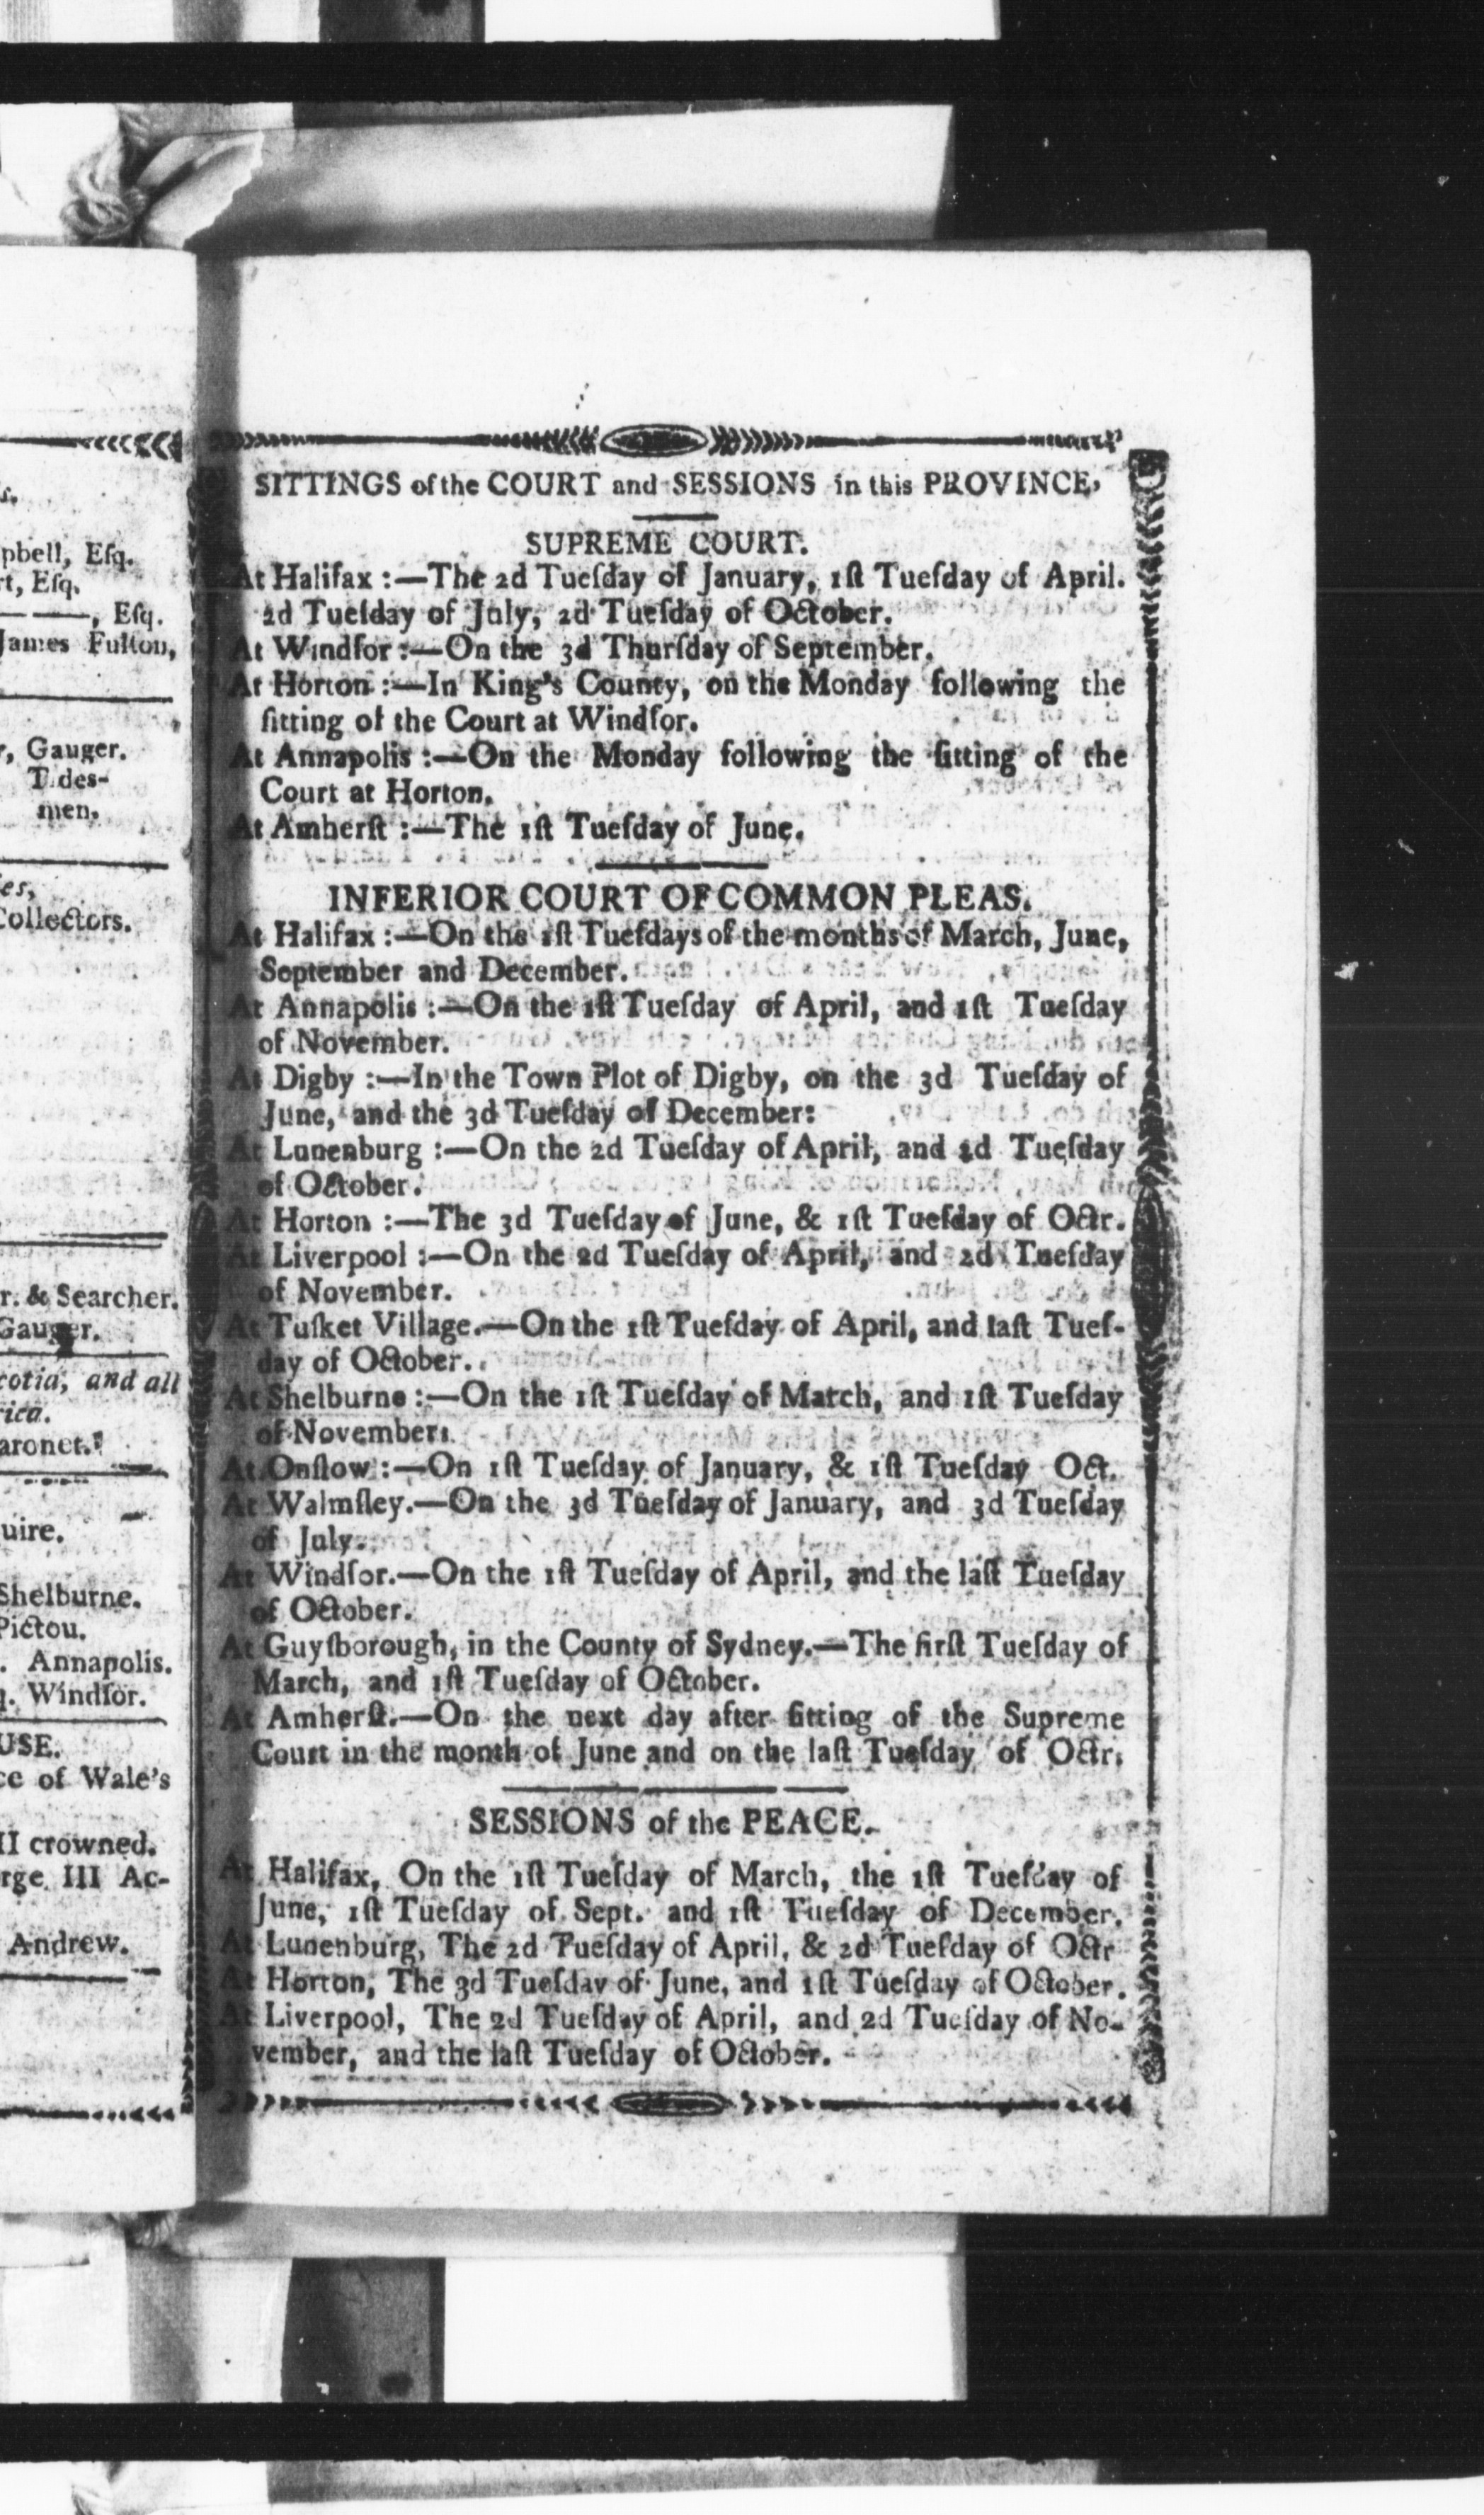 s.
pbell, Eſq.
rt, Eſq.
— —, Eſq.
James Fulton,
r, Gauger.
Tides-
men.
es,
Collectors.
r. & Searcher.
Gauger.
cotia, and all
rica.
aronet.
uire.
Shelburne.
Pictou.
. Annapolis.
q. Windſor.
USE.
ce of Wale's
II crowned.
rge III Ac-
Andrew.
SITTINGS of the COURT and SESSIONS in this PROVINCE,
SUPREME COURT.
At Halifax :—The 2d Tueſday of January, 1ſt Tueſday of April.
2d Tueſday of July, 2d Tueſday of October.
At Windſor :—On the 3d Thurſday of September.
At Horton :—In King's County, on the Monday following the
ſitting of the Court at Windſor.
At Annapolis :—On the Monday following the ſitting of the
Court at Horton.
At Amherſt :—The 1ſt Tueſday of June.
INFERIOR COURT OF COMMON PLEAS.
At Halifax :—On the 1ſt Tueſdays of the months of March, June,
September and December.
At Annapolis :—On the 1ſt Tueſday of April, and 1ſt Tueſday
of November.
At Digby :—In the Town Plot of Digby, on the 3d Tueſday of
June, and the 3d Tueſday of December:
At Lunenburg :—On the 2d Tueſday of April, and 2d Tueſday
of October.
At Horton :—The 3d Tueſday of June, & 1ſt Tueſday of Octr.
At Liverpool :—On the 2d Tueſday of April, and 2d Tueſday
of November.
At Tuſket Village.—On the 1ſt Tueſday of April, and laſt Tueſ-
day of October.
At Shelburne :—On the 1ſt Tueſday of March, and 1ſt Tueſday
of November.
At Onſlow :—On 1ſt Tueſday of January, & 1ſt Tueſday Oct.
At Walmſley.—On the 3d Tueſday of January, and 3d Tueſday
of July.
At Windſor.—On the 1ſt Tueſday of April, and the laſt Tueſday
of October.
At Guyſborough, in the County of Sydney.—The firſt Tueſday of
March, and 1ſt Tueſday of October.
At Amherſt.—On the next day after ſitting of the Supreme
Court in the month of June and on the laſt Tueſday of Octr.
SESSIONS of the PEACE.
At Halifax, On the 1ſt Tueſday of March, the 1ſt Tueſday of
June, 1ſt Tueſday of Sept. and 1ſt Tueſday of December.
At Lunenburg, The 2d Tueſday of April, & 2d Tueſday of Octr
At Horton, The 3d Tueſday of June, and 1ſt Tueſday of October.
At Liverpool, The 2d Tueſday of April, and 2d Tueſday of No-
vember, and the laſt Tueſday of October.